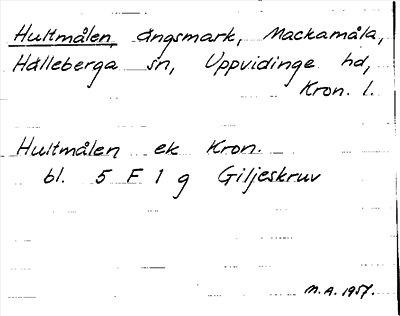 Hultmålen, ängsmark, Mackamåla,
Hälleberga sn, Uppvidinge hd,
Kron. l.
Hultmålen ek Kron.
bl. 5 F 1 g Giljeskruv
M.A. 1957.